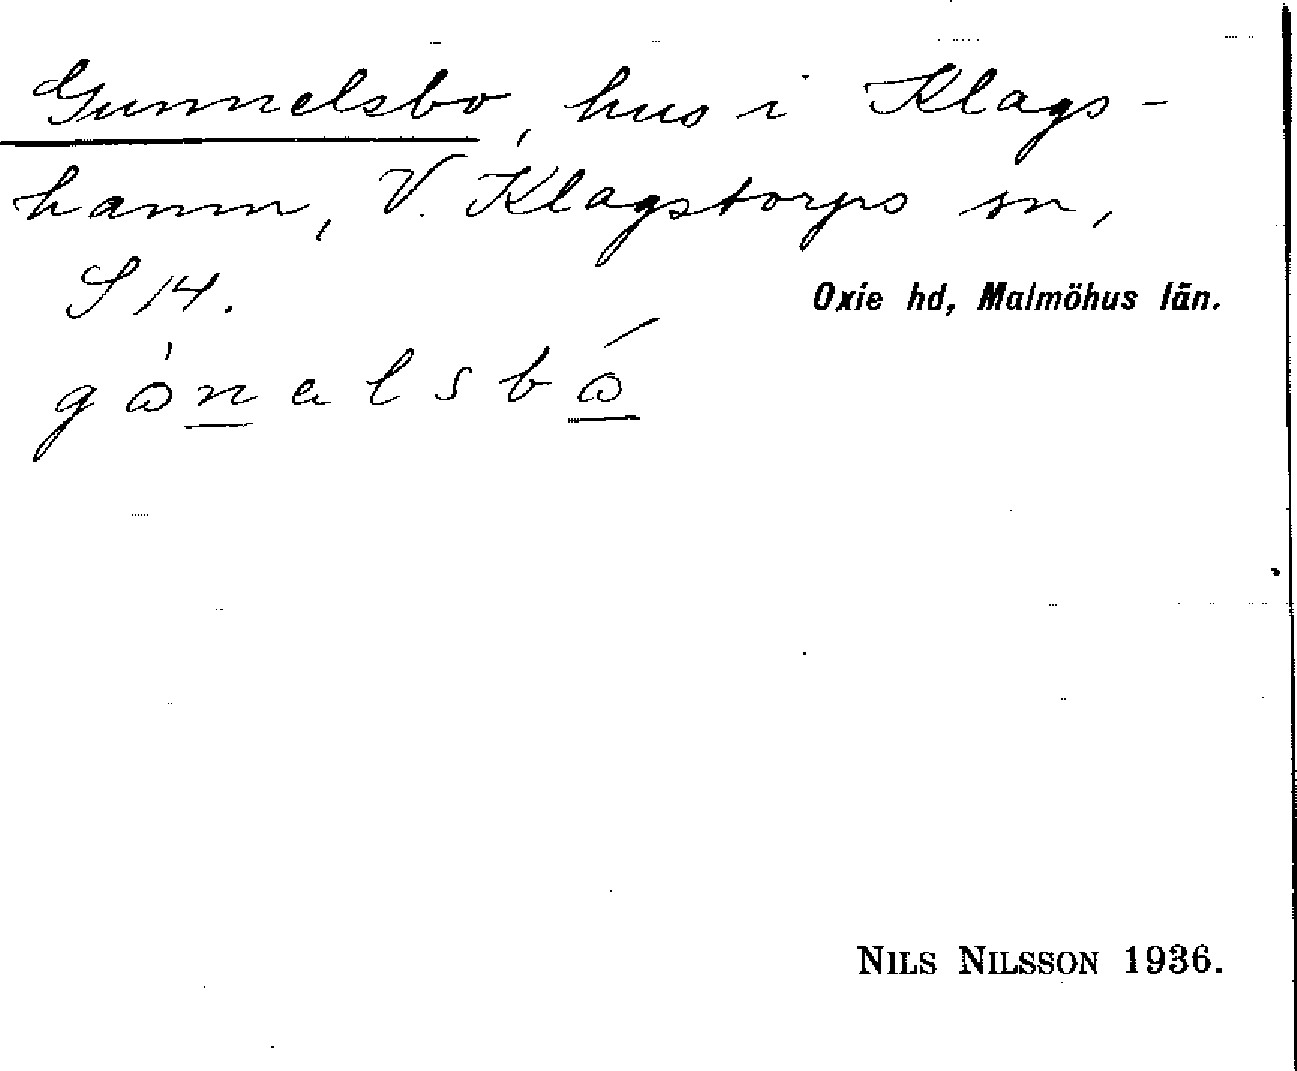 Gunnelsbo, hus i Klags-
hamn, V. Klagstorps sn,
S 14.
Oxie hd, Malmöhus län.
NILS NILSSON 1936.